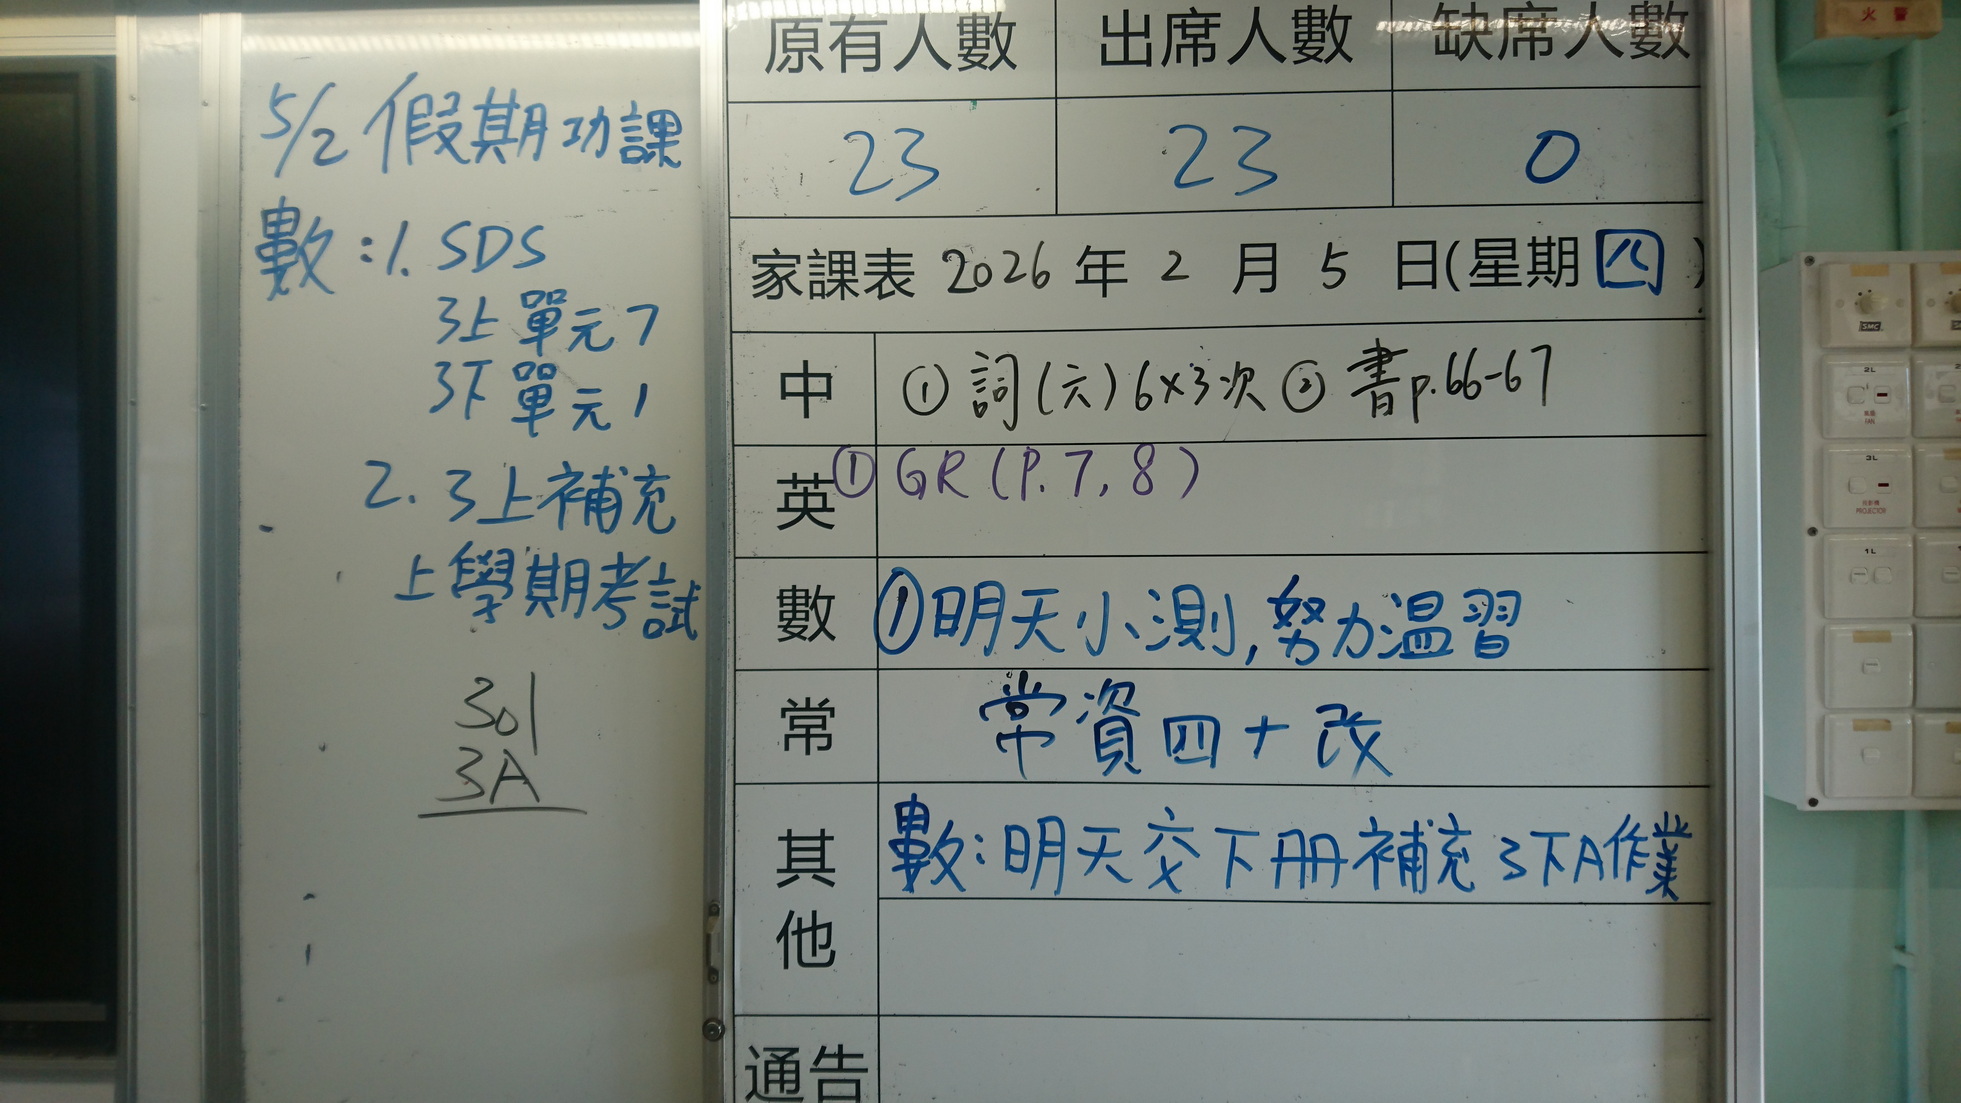 5/2 假期功課
數：1. SDS
3上單元7
3下單元1
2. 3上補充
上學期考試
301
3A
原有人數 出席人數 缺席人數
23 23 0
家課表 2026 年 2 月 5 日(星期四)
中 ① 詞(六)6×3次 ② 書p.66-67
英 ① GR (P. 7, 8)
數 ①明天小測,努力溫習
常 常資四+改
其他 數：明天交下冊補充 3下A作業
通告
火警
SMC
2L
風扇
FAN
3L
投影機
PROJECTOR
1L